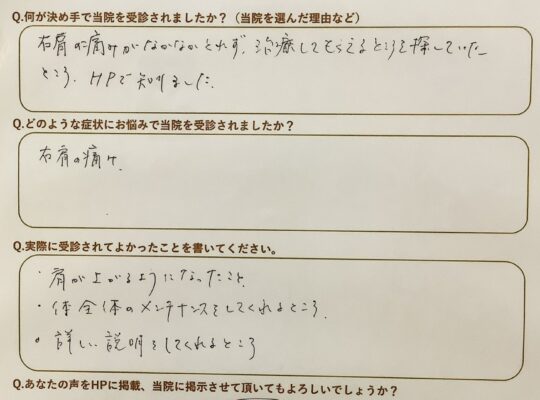 Q.何が決め手で当院を受診されましたか？（当院を選んだ理由など）
右肩の痛みがなかなかとれず、治療してもらえるところを探していた
ところ、HPで知りました。
Q.どのような症状にお悩みで当院を受診されましたか？
右肩の痛み、
Q.実際に受診されてよかったことを書いてください。
・肩が上がるようになったこと
・体全体のメンテナンスをしてくれるところ、
・詳しい説明をしてくれるところ
Q.あなたの声をHPに掲載、当院に掲示させて頂いてもよろしいでしょうか？